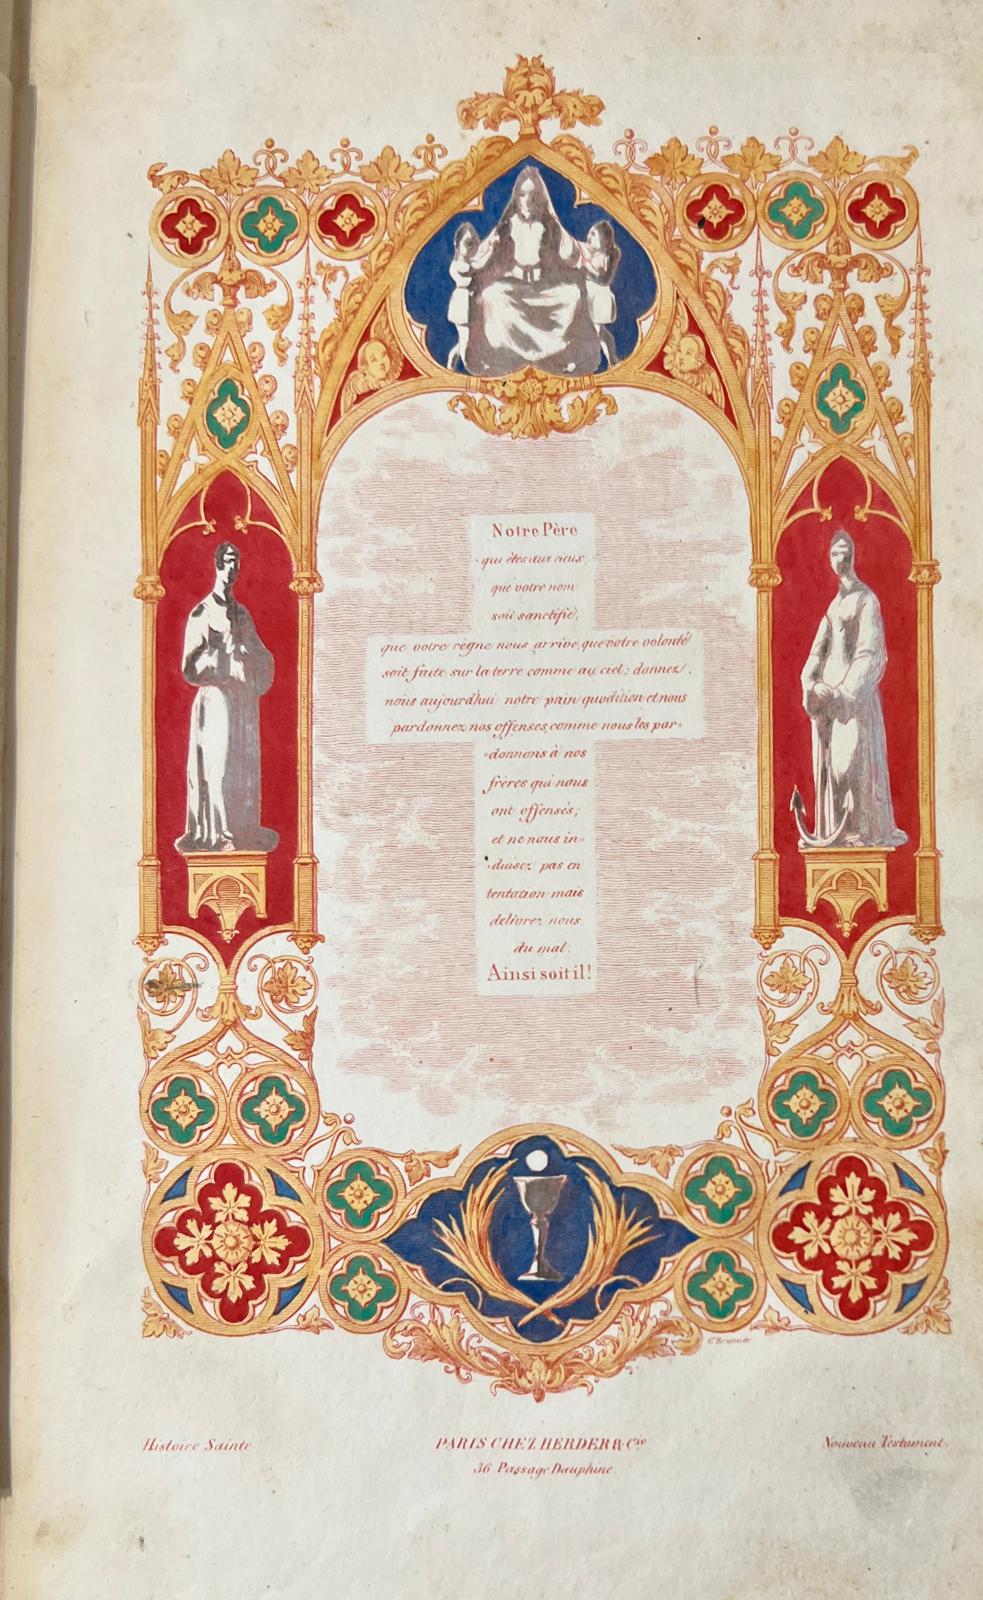 Notre Père
qui êtes aux cieux
que votre nom
soit sanctifié,
que votre règne nous arrive, que votre volonté
soit faite sur la terre comme au ciel; donnez
nous aujourd'hui notre pain quotidien et nous
pardonnez nos offenses, comme nous les par-
donnons à nos
frères qui nous
ont offensés;
et ne nous in-
duisez pas en
tentation mais
delivrez nous
du mal.
Ainsi soit il!
G. Brunner
Histoire Sainte
PARIS CHEZ HERDER & Cie
Nouveau Testament.
36 Passage Dauphine.